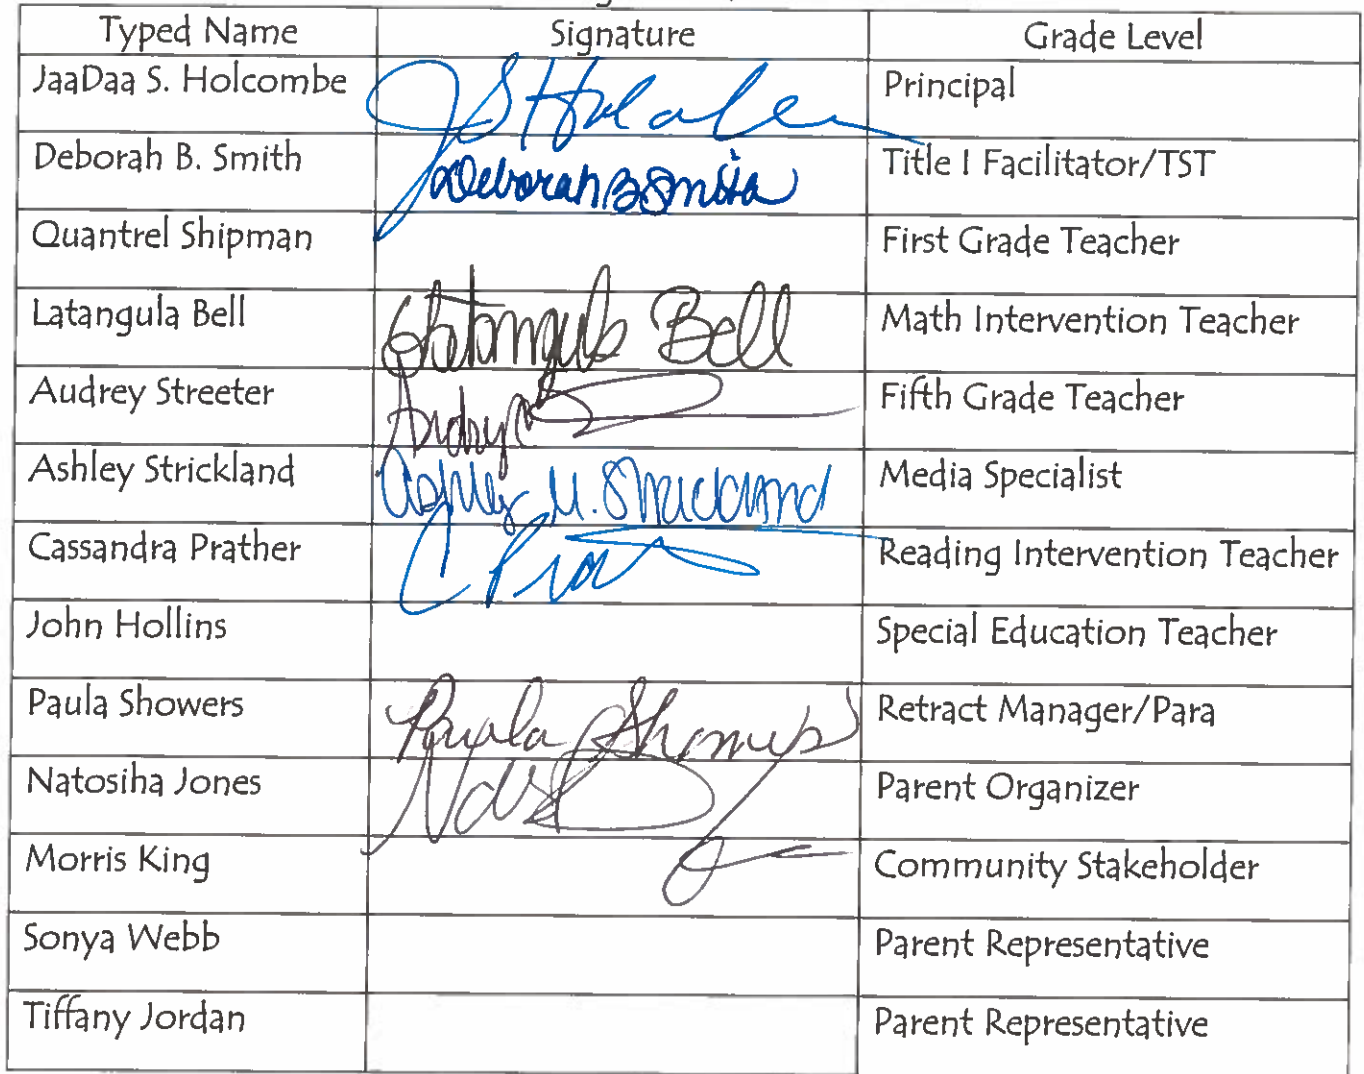 Typed Name Signature Grade Level
JaaDaa S. Holcombe JS Holcombe Principal
Deborah B. Smith Deborah B Smith Title I Facilitator/TST
Quantrel Shipman First Grade Teacher
Latangula Bell Latangula Bell Math Intervention Teacher
Audrey Streeter Audrey Fifth Grade Teacher
Ashley Strickland Ashley M. Strickland Media Specialist
Cassandra Prather C Prat Reading Intervention Teacher
John Hollins Special Education Teacher
Paula Showers Paula Showers Retract Manager/Para
Natosiha Jones Parent Organizer
Morris King Community Stakeholder
Sonya Webb Parent Representative
Tiffany Jordan Parent Representative